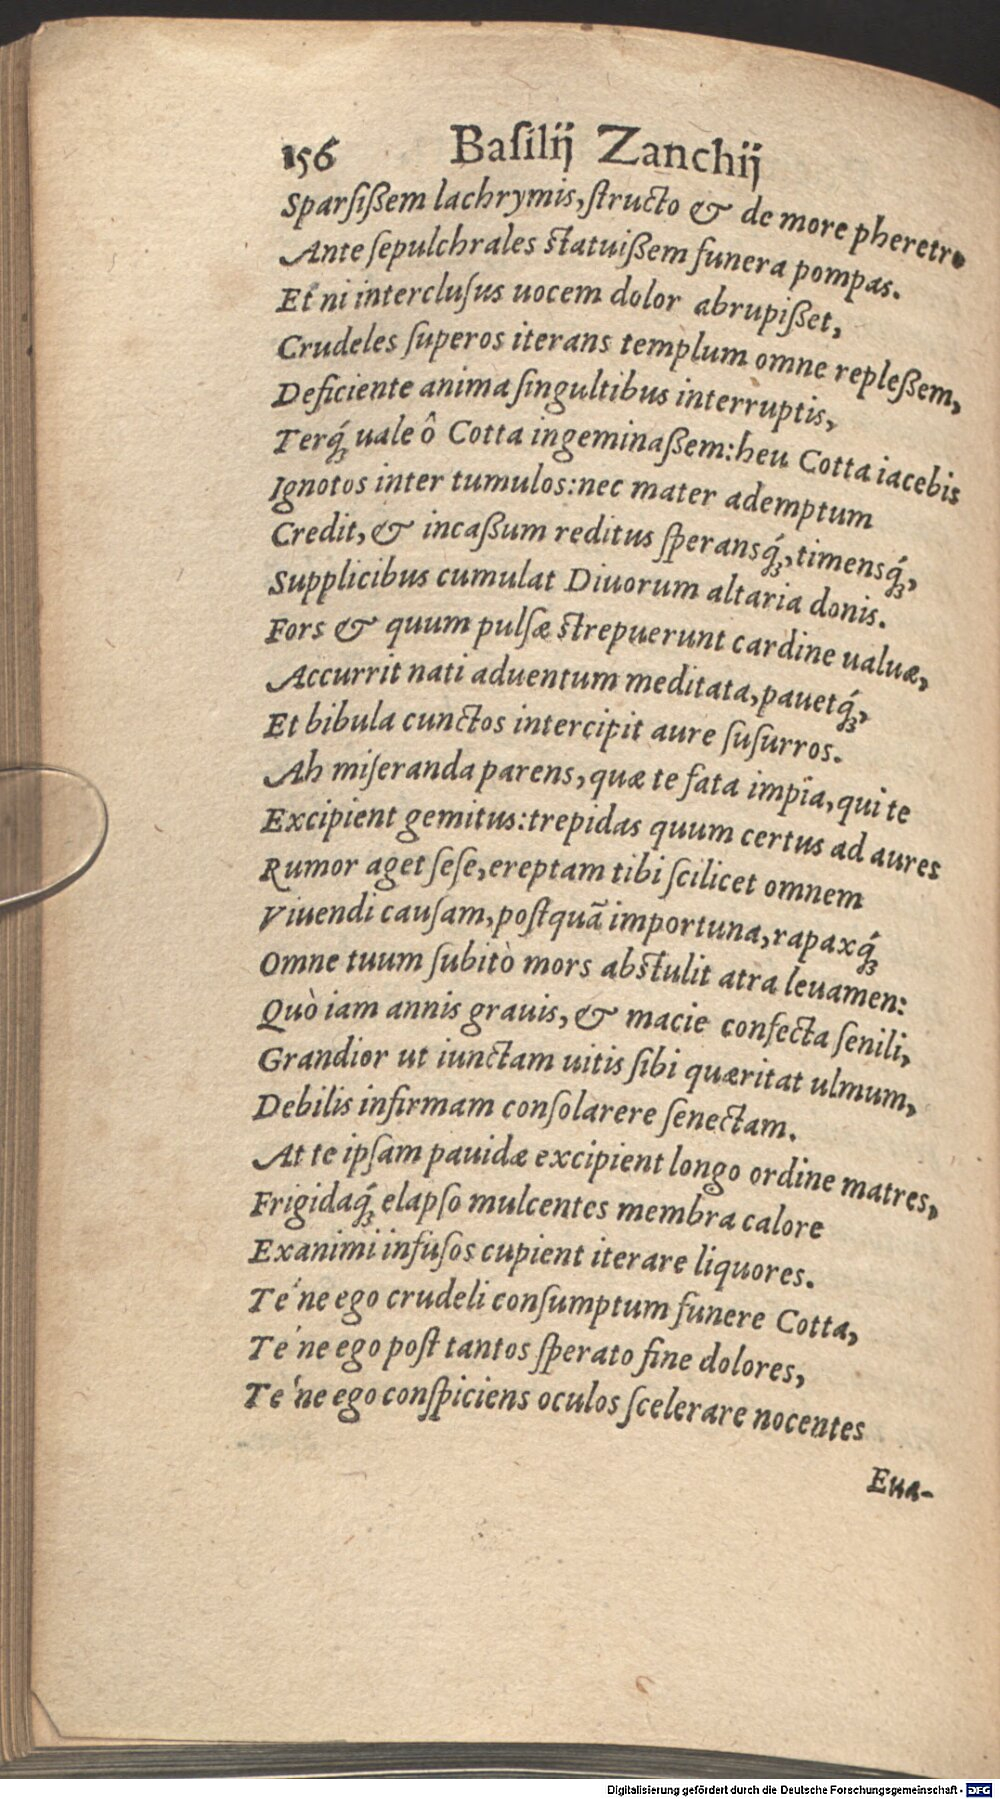 156 Baſilij Zanchij
Sparſißem lachrymis, ſtructo & de more pheretro
Ante ſepulchrales ſtatuißem funera pompas.
Et ni intercluſus uocem dolor abrupißet,
Crudeles ſuperos iterans templum omne repleßem,
Deficiente anima ſingultibus interruptis,
Terq́; uale ô Cotta ingeminaßem: heu Cotta iacebis
Ignotos inter tumulos: nec mater ademptum
Credit, & incaßum reditus ſperansq́;, timensq́;,
Supplicibus cumulat Diuorum altaria donis.
Fors & quum pulſæ ſtrepuerunt cardine ualuæ,
Accurrit nati aduentum meditata, pauetq́;,
Et bibula cunctos intercipit aure ſuſurros.
Ah miſeranda parens, quæ te fata impia, qui te
Excipient gemitus: trepidas quum certus ad aures
Rumor aget ſeſe, ereptam tibi ſcilicet omnem
Viuendi cauſam, poſtquā importuna, rapaxq́;
Omne tuum ſubitò mors abſtulit atra leuamen:
Quò iam annis grauis, & macie confecta ſenili,
Grandior ut iunctam uitis ſibi quæritat ulmum,
Debilis infirmam conſolarere ſenectam.
At te ipſam pauidæ excipient longo ordine matres,
Frigidaq́; elapſo mulcentes membra calore
Exanimi infuſos cupient iterare liquores.
Te'ne ego crudeli conſumptum funere Cotta,
Te'ne ego poſt tantos ſperato fine dolores,
Te'ne ego conſpiciens oculos ſcelerare nocentes
Eua-
Digitalisierung gefördert durch die Deutsche Forschungsgemeinschaft - DFG